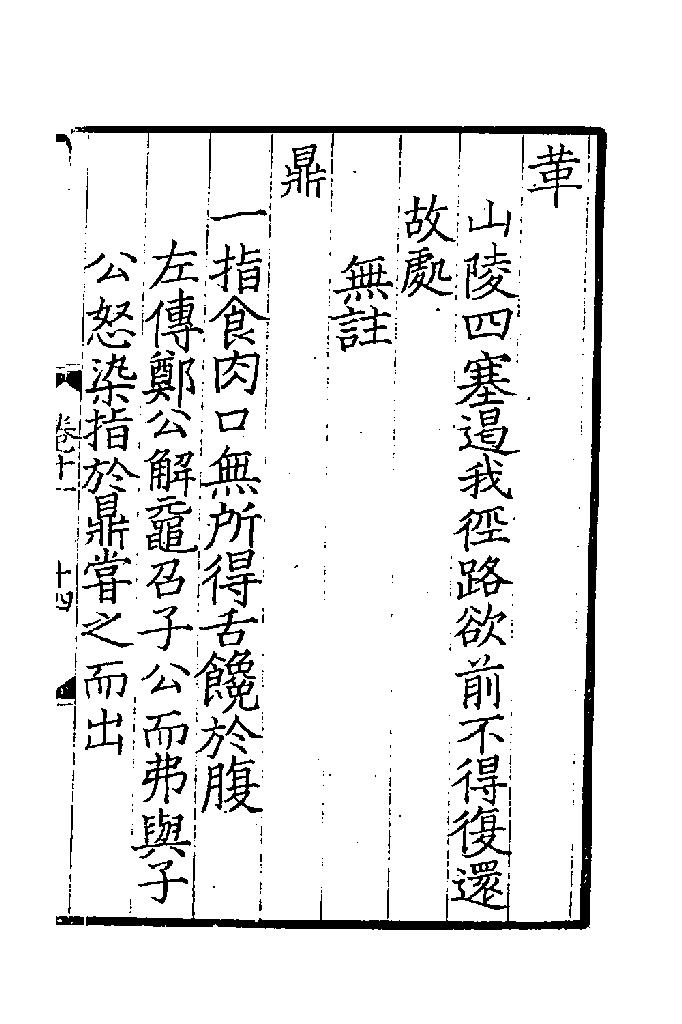 革
山陵四塞遏我徑路欲前不得復還
故處
無註
鼎
一指食肉口無所得舌饞於腹
左傳鄭公解黿召子公而弗與子
公怒染指於鼎嘗之而出
卷十一
十四